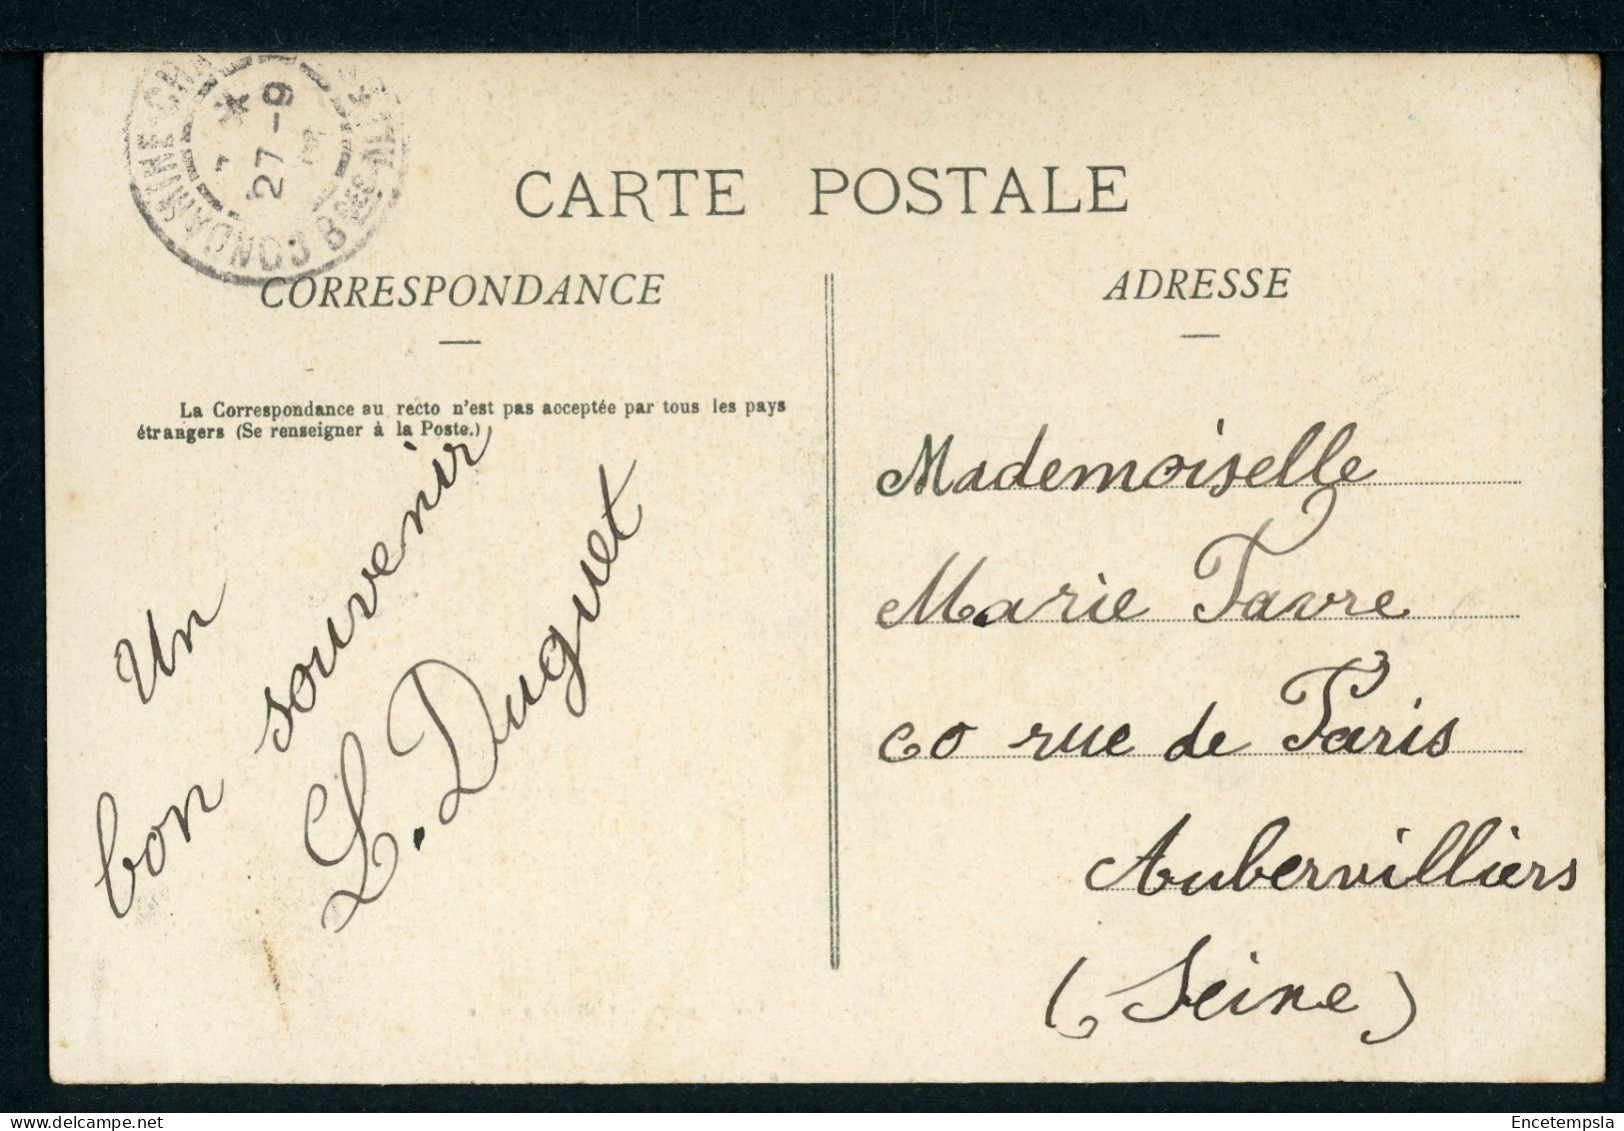 27-9
CARTE POSTALE
CORRESPONDANCE
ADRESSE
La Correspondance au recto n'est pas acceptée par tous les pays
étrangers (Se renseigner à la Poste.)
Un
bon souvenir
L. Duguet
Mademoiselle
Marie Favre
60 rue de Paris
Aubervilliers
(Seine)
Encetempsla